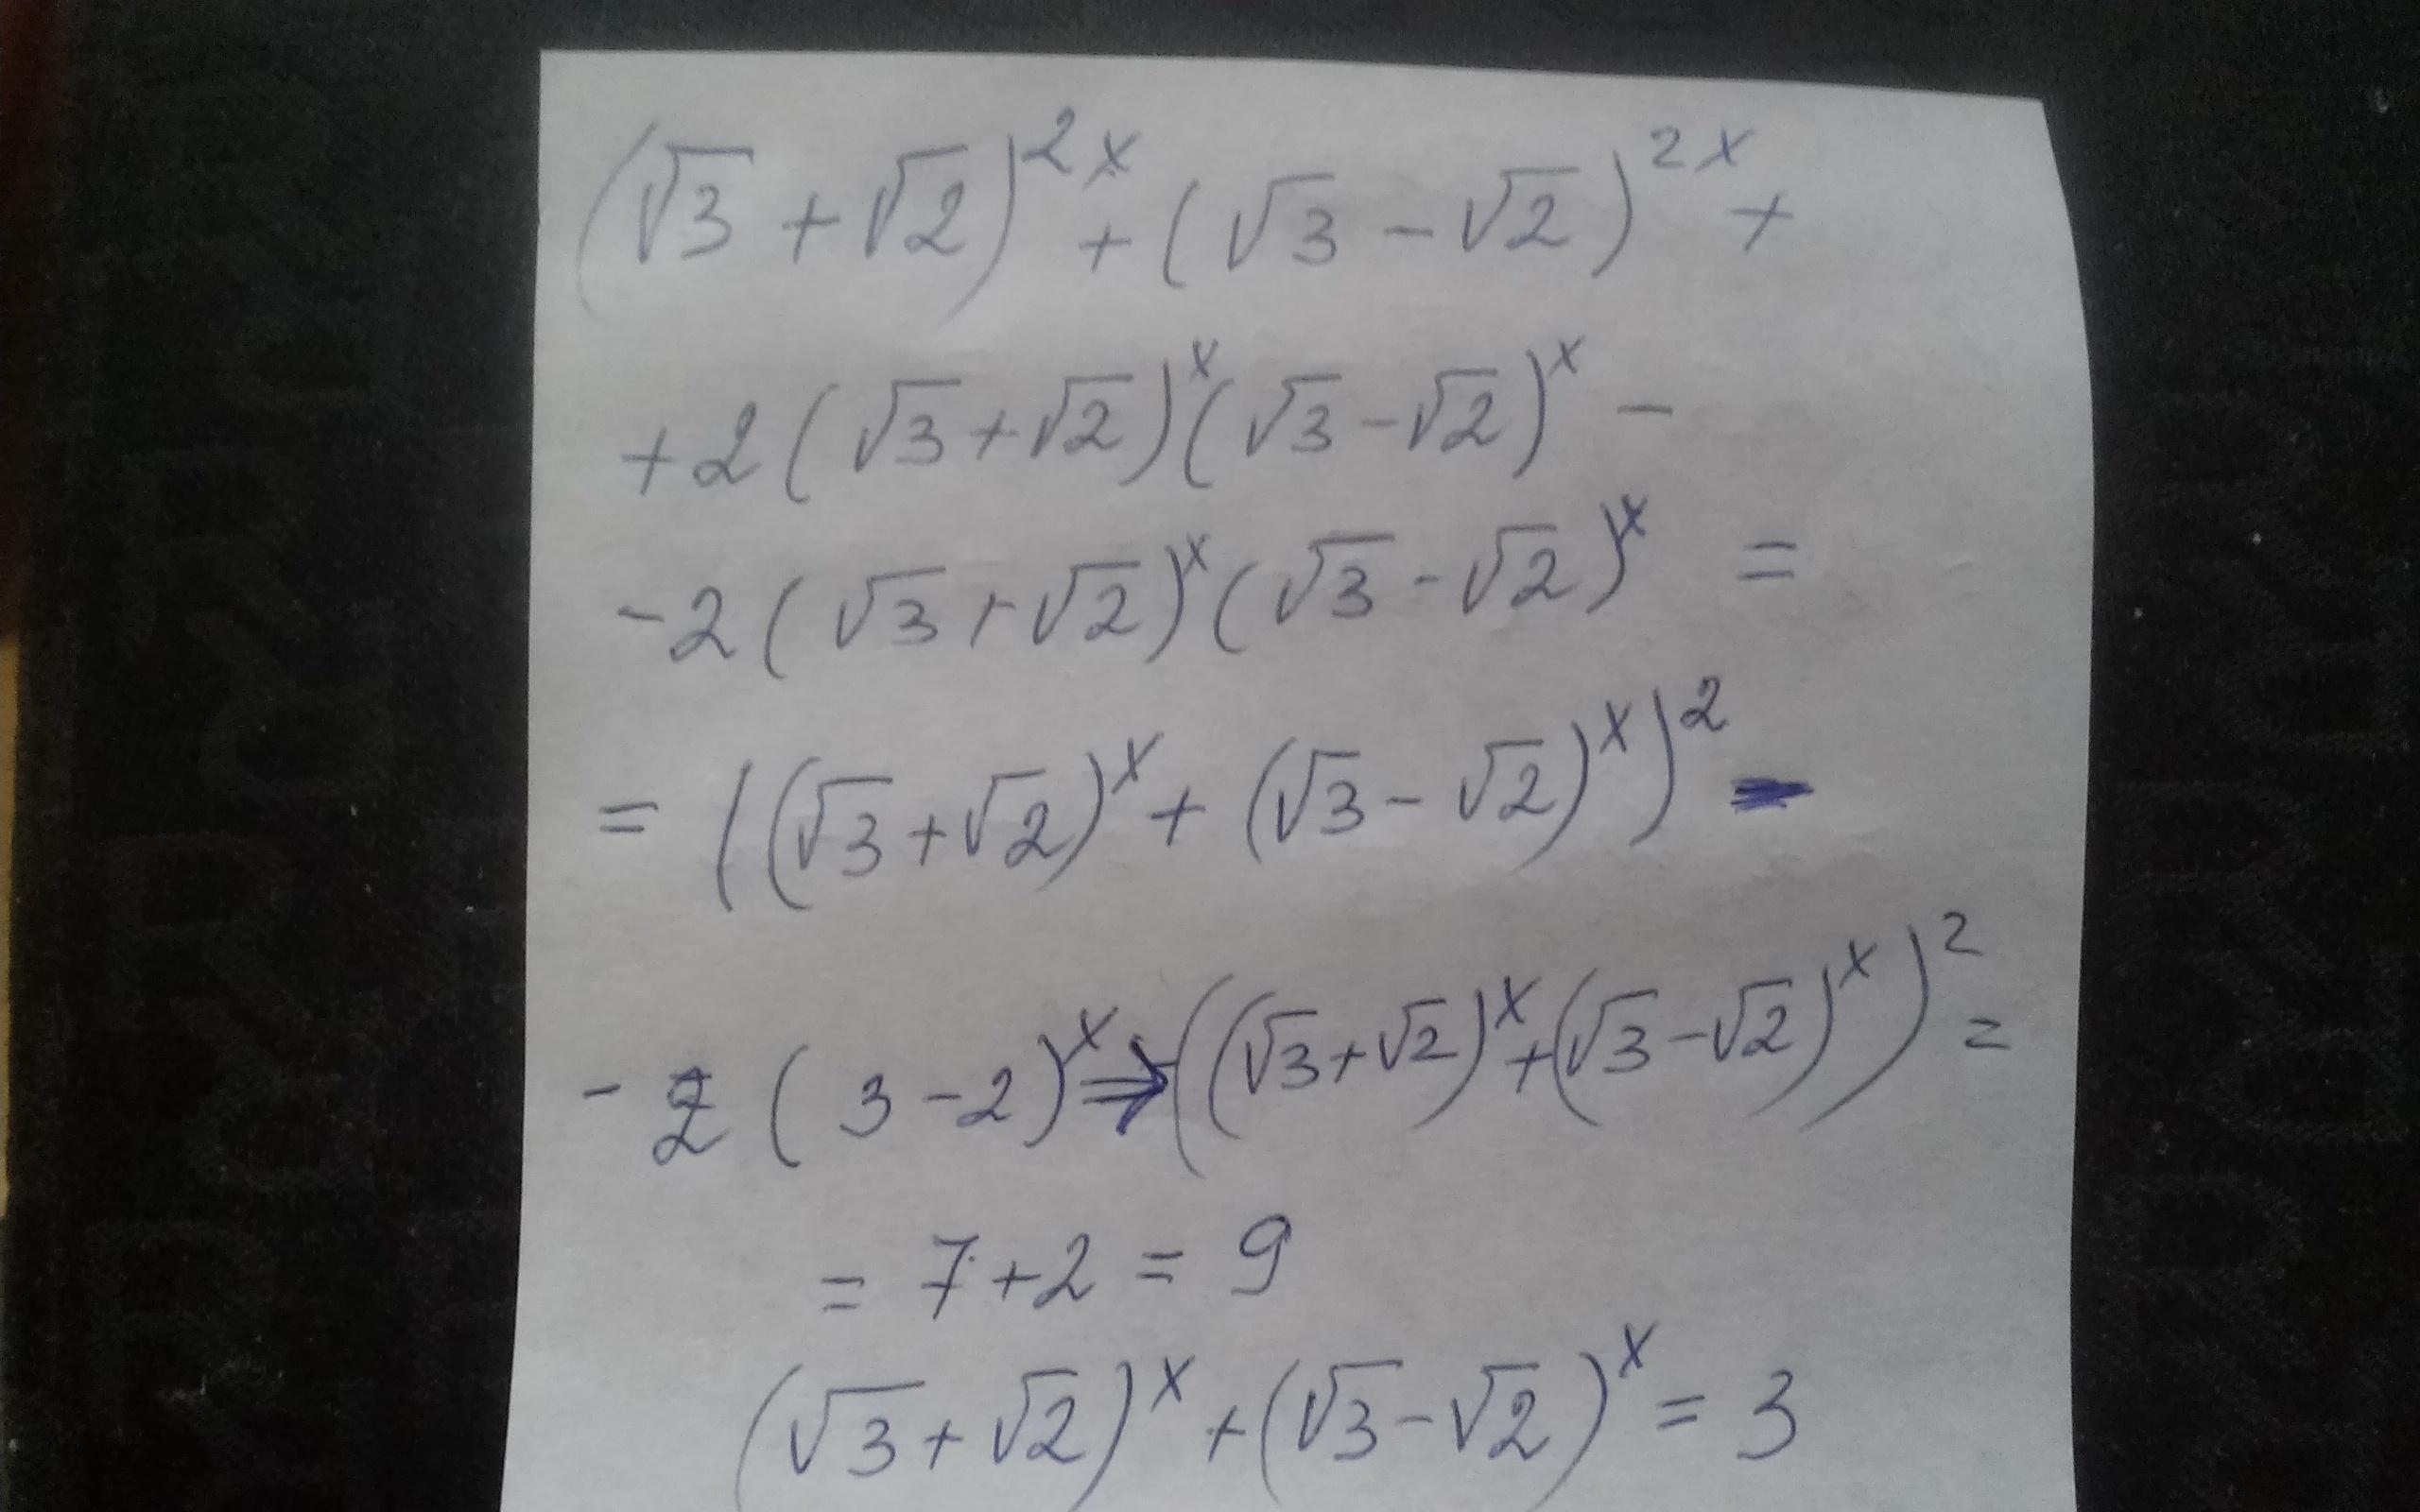 (√3 + √2)^2x + (√3 - √2)^2x +
+ 2 (√3 + √2)^x (√3 - √2)^x -
- 2 (√3 + √2)^x (√3 - √2)^x =
= ((√3 + √2)^x + (√3 - √2)^x)^2 -
- 2 (3 - 2)^x ⇒ ((√3 + √2)^x + (√3 - √2)^x)^2 =
= 7 + 2 = 9
(√3 + √2)^x + (√3 - √2)^x = 3